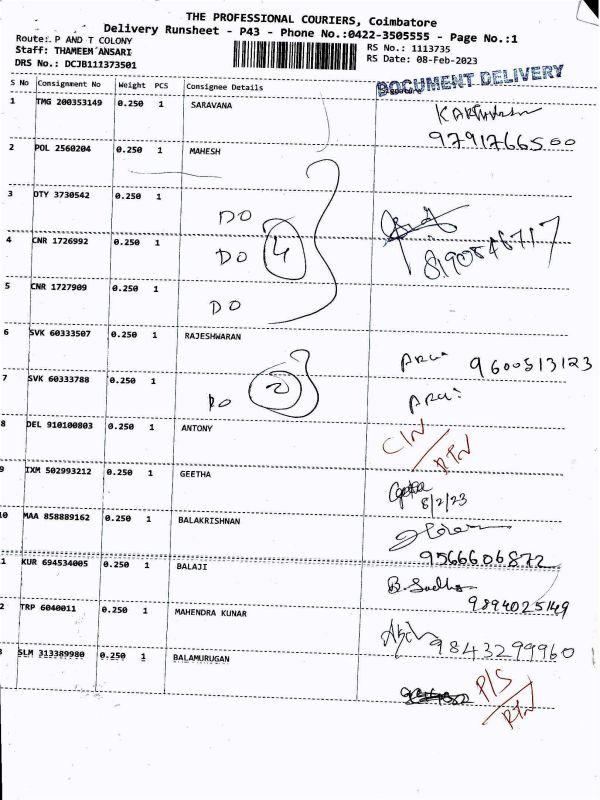 THE PROFESSIONAL COURIERS, Coimbatore
Delivery Runsheet - P43 - Phone No.:0422-3505555 - Page No.:1
Route: P AND T COLONY
Staff: THAMEEM ANSARI
DRS No.: DCJB111373501
RS No.: 1113735
RS Date: 08-Feb-2023
S No Consignment No Weight PCS Consignee Details
DOCUMENT DELIVERY
1 TMG 200353149 0.250 1 SARAVANA
9791766500
2 POL 2560204 0.250 1 MAHESH
3 DTY 3730542 0.250 1
DO
4 CNR 1726992 0.250 1 DO 4
8190846717
5 CNR 1727909 0.250 1
DO
6 SVK 60333507 0.250 1 RAJESHWARAN
9600513123
7 SVK 60333788 0.250 1
DO 2
8 DEL 910100803 0.250 1 ANTONY
C/N
RTN
9 IXM 502993212 0.250 1 GEETHA
Geetha
8/2/23
10 MAA 858889162 0.250 1 BALAKRISHNAN
9566606872
1 KUR 694534005 0.250 1 BALAJI
B. Sudha
9894025149
2 TRP 6040011 0.250 1 MAHENDRA KUNAR
9843299960
3 SLM 313389980 0.250 1 BALAMURUGAN
P/S
RTN